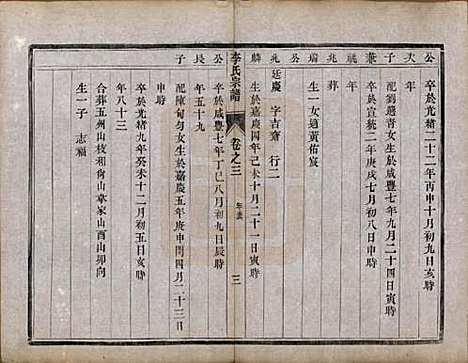 公
卒於光緒二十二年丙申十月初九日亥時
大
配劉過普女生於咸豐七年九月二十四日寅時
子
卒於宣統二年庚戌七月初八日申時
兼
年
祧
葬
兆
生一女適黃佑宸
瑞
公
兆
廷慶 字吉齋 行二
麟
生於嘉慶四年己未十月二十一日寅時
李氏宗譜
卷之三
年表
三
公
卒於咸豐七年丁巳八月初九日辰時
長
年五十九
子
配陳甸勻女生於嘉慶五年庚申閏四月二十三日
申時
卒於光緒九年癸未十二月初五日亥時
年八十三
合葬五州山枝相向山韋家山酉山卯向
生一子 志福